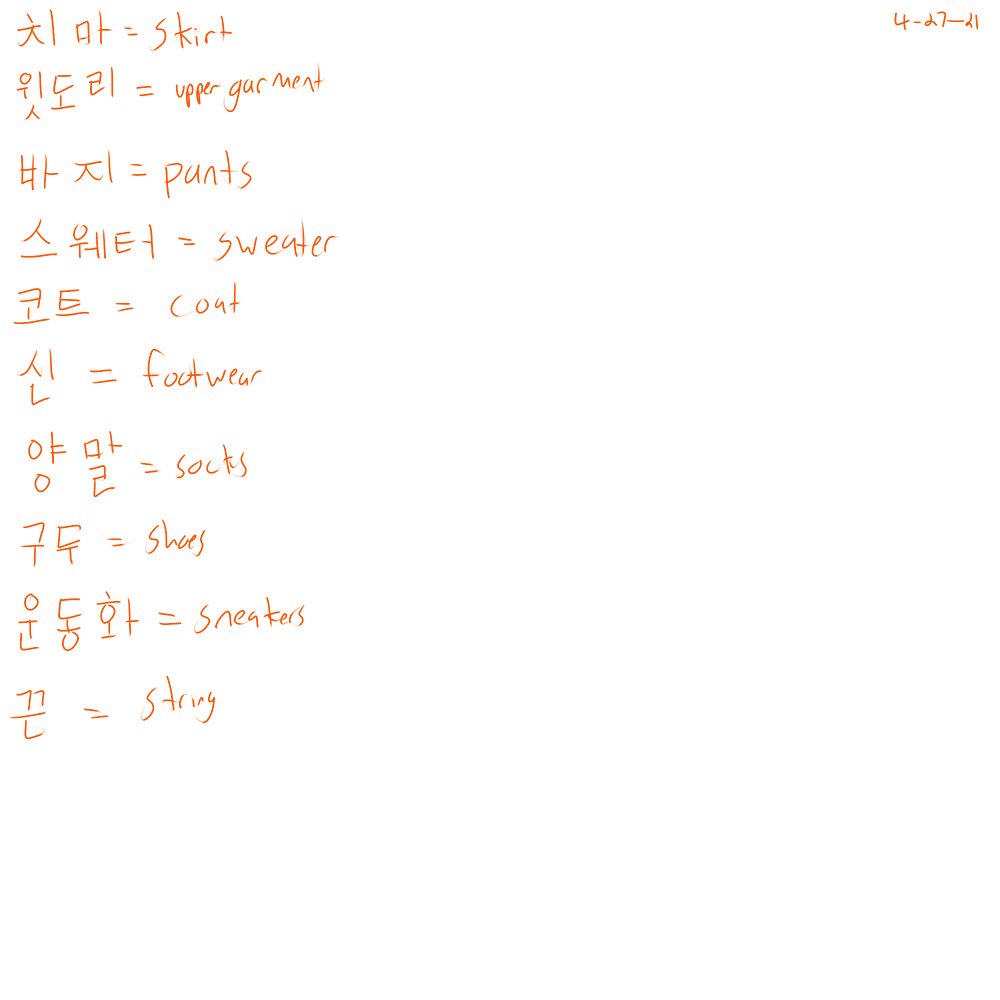 치마 = skirt 4-27-21
윗도리 = upper garment
바지 = pants
스웨터 = sweater
코트 = coat
신 = footwear
양말 = socks
구두 = shoes
운동화 = sneakers
끈 = string